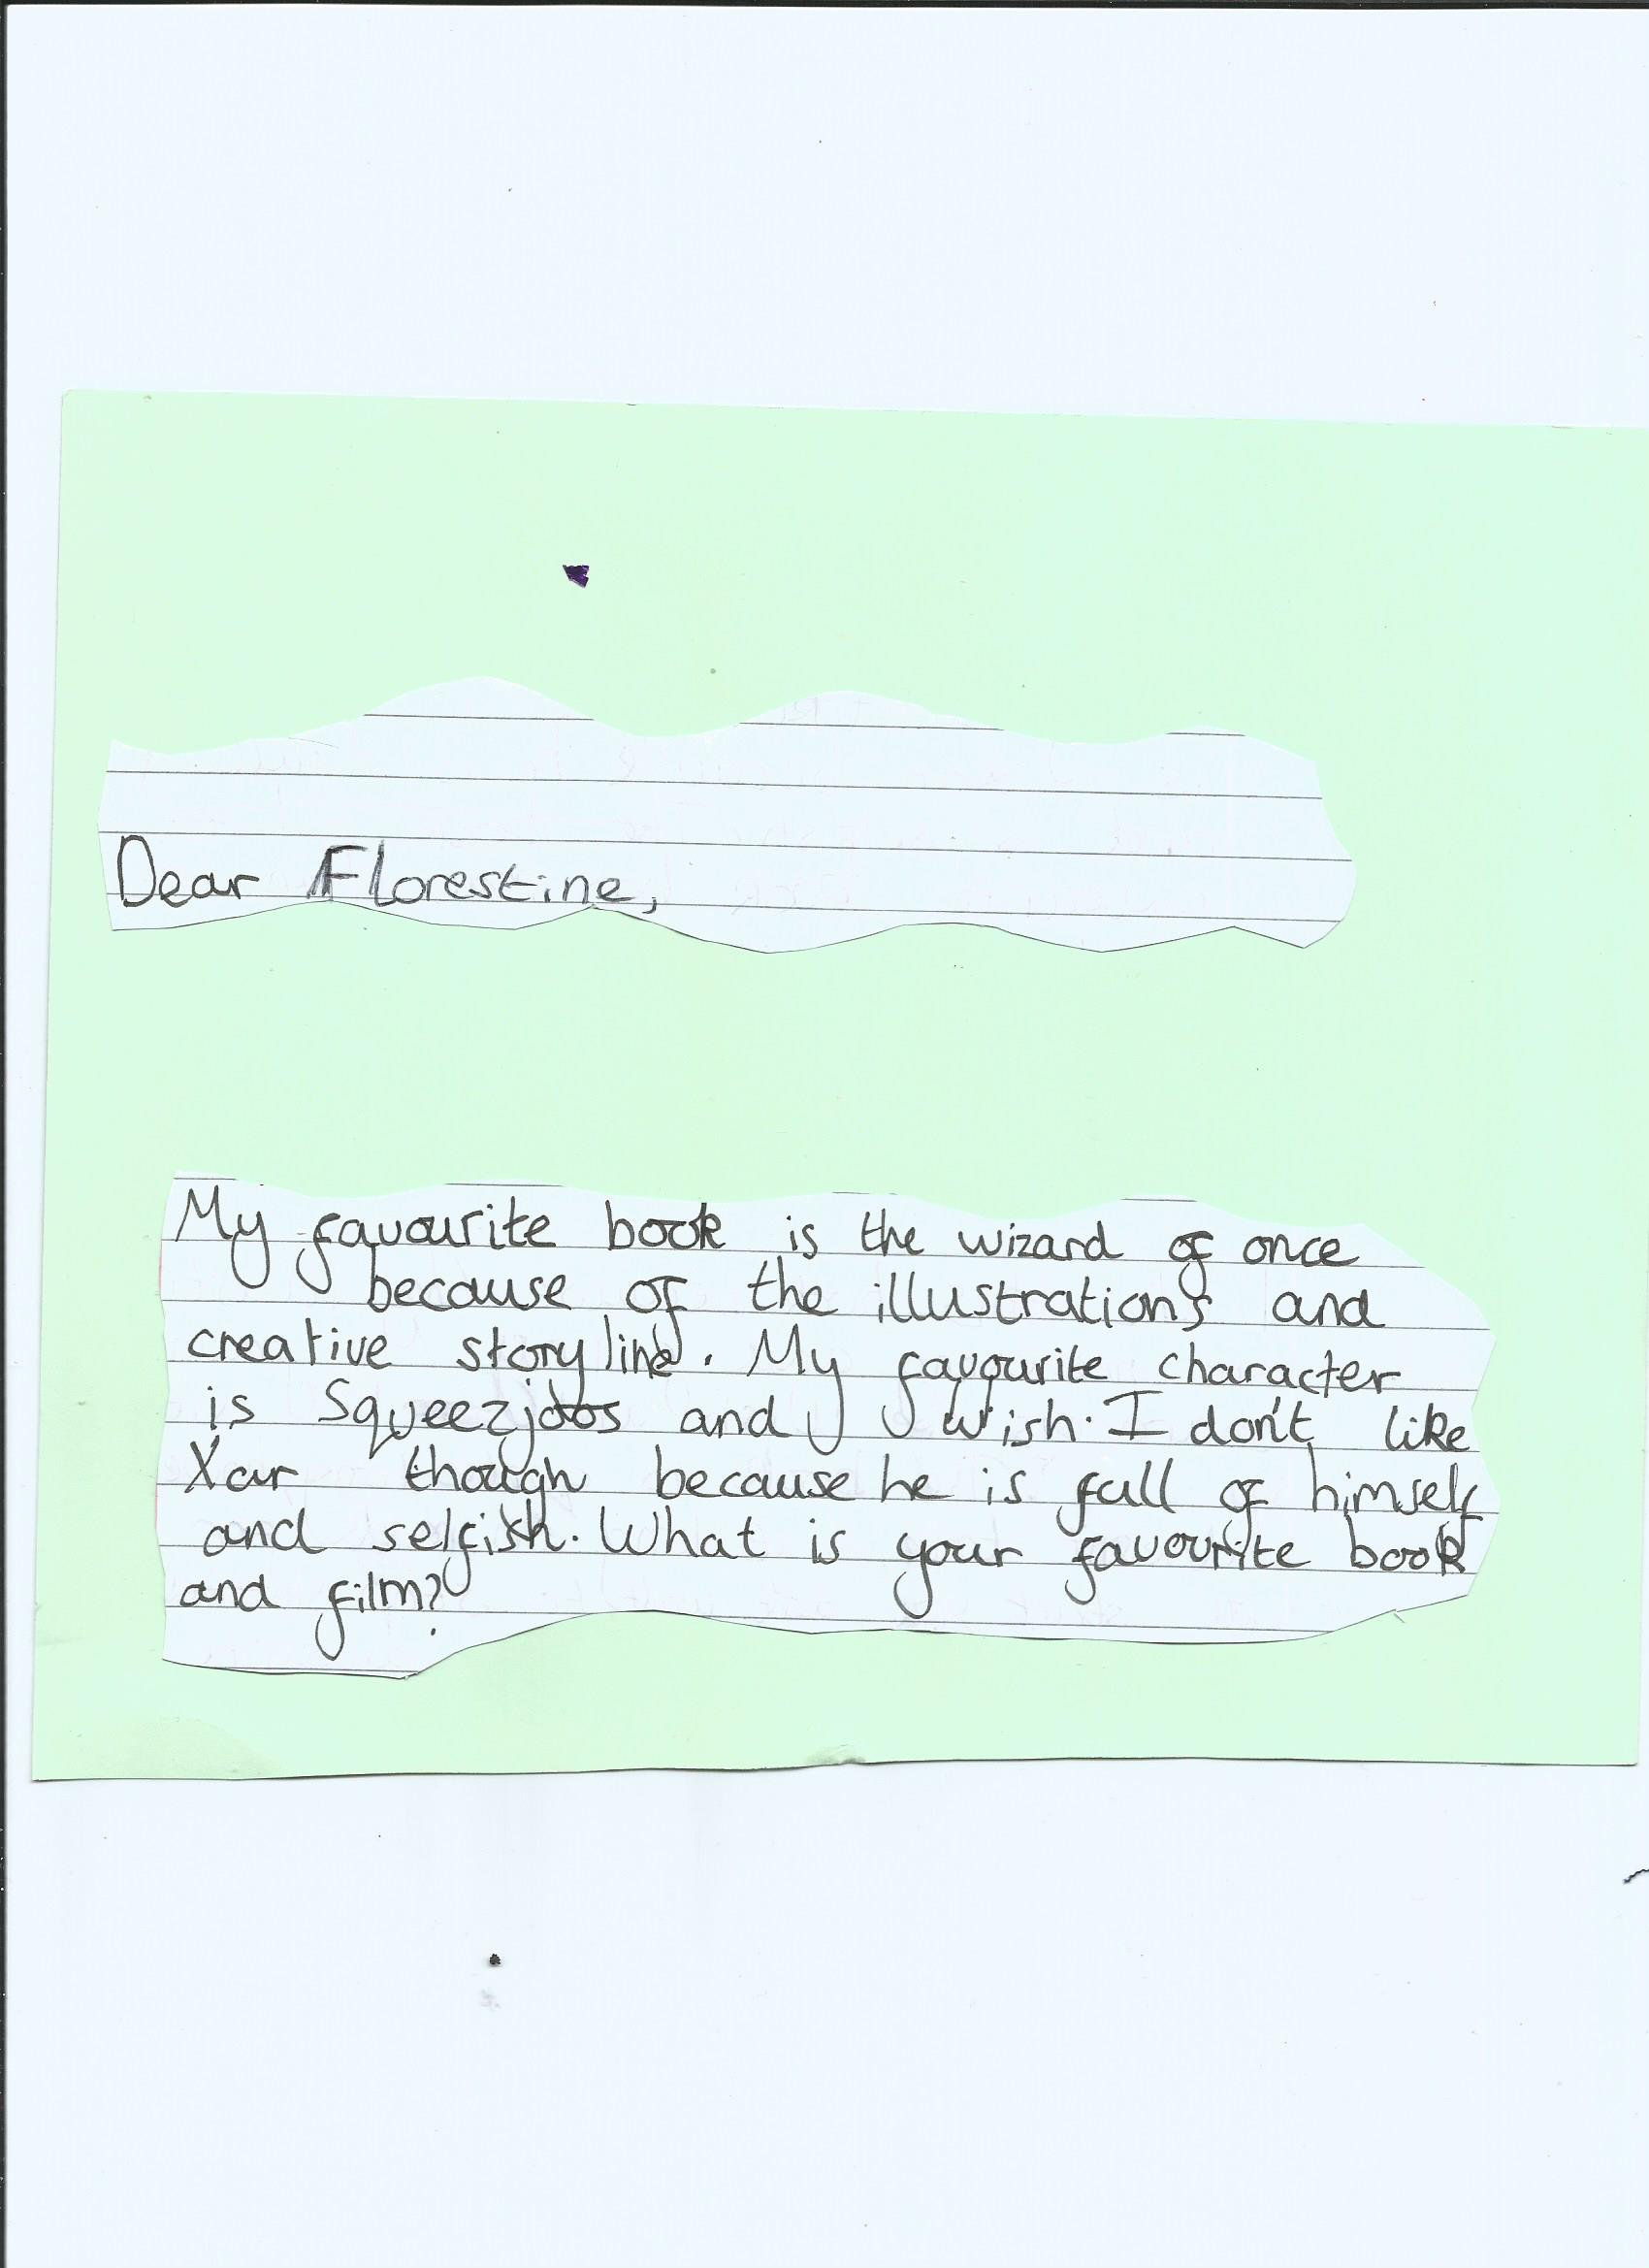 Dear Florestine,
My favourite book is the wizard of once
because of the illustrations and
creative storyline. My favourite character
is Squeezjoos and wish. I don't like
Xar though because he is full of himself
and selfish. What is your favourite book
and film?